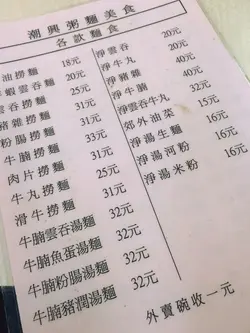 潮興粥麵美食
各款麵食
油撈麵 18元
蝦雲吞麵 20元
雲吞撈麵 25元
豬雜撈麵 31元
粉腸撈麵 31元
牛腩撈麵 33元
肉片撈麵 31元
牛丸撈麵 31元
滑牛撈麵 31元
牛腩雲吞湯麵 32元
牛腩魚蛋湯麵 32元
牛腩粉腸湯麵 32元
牛腩豬潤湯麵 32元
淨雲吞 20元
淨牛丸 20元
淨豬雜 40元
淨牛腩 40元
淨雲吞牛丸 32元
郊外油菜 15元
淨湯生麵 16元
淨湯河粉 16元
淨湯米粉 16元
外賣碗收一元